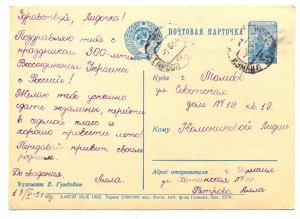 Здравствуй, Лидочка!
Поздравляю тебя с
праздником 300-летия
Воссоединения Украины
с Россией!
Желаю тебе успешно
сдать экзамены, перейти
в седьмой класс и
хорошо провести лето!
Передавай привет своим
родным.
До свидания
Алла.
Художник Е. Гундобин
ПОЧТОВАЯ КАРТОЧКА
Куда г. Тамбов
ул. Советская
дом № 19 кв 19.
Кому Колесниковой Лидии.
Адрес отправителя: г. Измаил
ул. Хотинская №
Петрова Алла